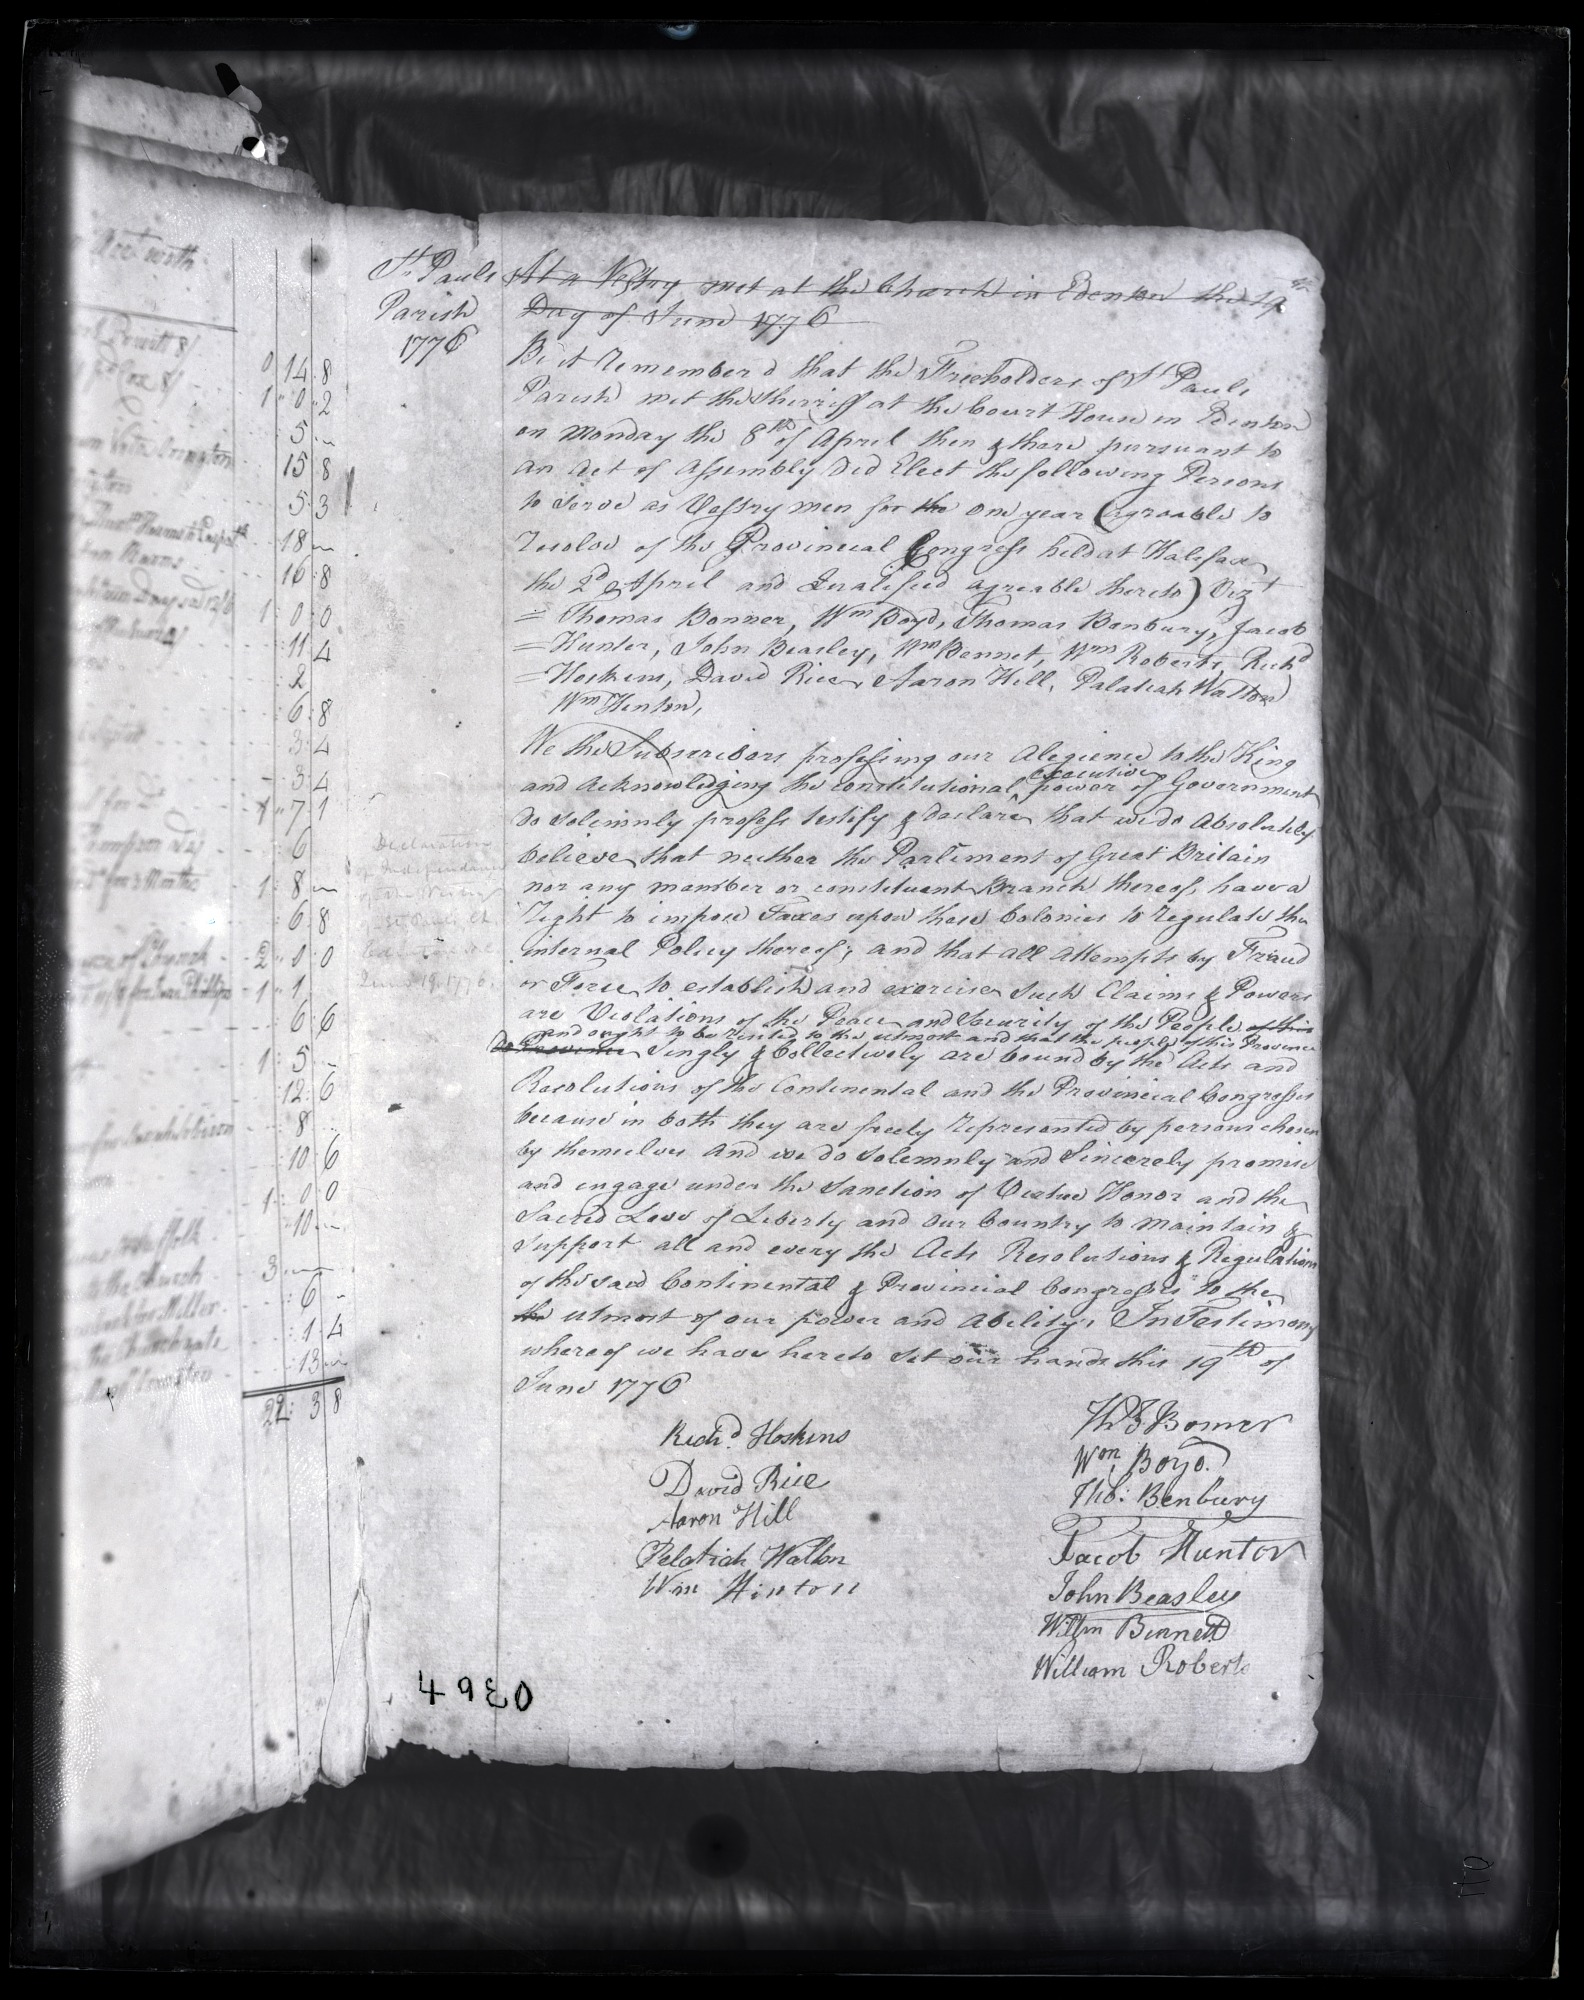 St. Pauls
Parish
1776
At a Vestry met at the Church in Edenton the 19th
Day of June 1776
Be it Remember'd that the Freeholders of St Pauls
Parish met the Sherriff at the Court House in Edenton
on Monday the 8th of April then & there pursuant to
an Act of Assembly Did Elect the following Persons
to Serve as Vestry men for the one year (agreable to
Resolve of the Provincial Congress held at Halifax
the 2d April and Qualified agreable thereto) Vizt
= Thomas Bonner, Wm Boyd, Thomas Benbury, Jacob
= Hunter, John Beasley, Wm Bennet, Wm Roberts, Richd
= Hoskins, David Rice, Aaron Hill, Palatiah Walton
Wm Hinton,
We the Subscribers professing our Alegience to the King
and Acknowledging the constitutional executive power of Government
do solemnly profess testify & declare that we do Absolutely
believe that neither the Parliment of Great Britain
nor any member or constituent Branch thereof, have a
Right to impose Taxes upon these Colonies to regulate the
internal Policy thereof; and that all attempts by Fraud
or Force to establish and exercise such Claims & Powers
are Violations of the Peace and Security of the People of this
and ought to be resisted to the utmost and that the people of this Province
Province Singly & Collectively are bound by the Acts and
Resolutions of the Continental and the Provincial Congresses
because in both they are freely represented by persons chosen
by themselves And we do Solemnly and Sincerely promise
and engage under the Sanction of Virtue Honor and the
Sacred Love of Liberty and Our Country to Maintain &
Support all and every the Acts Resolutions & Regulations
of the said Continental & Provincial Congresses to the
the utmost of our power and Ability; In Testimony
whereof we have hereto set our hands this 19th of
June 1776
Richd. Hoskins
David Rice
Aaron Hill
Pelatiah Walton
Wm Hinton
Ths Bonner
Wm. Boyd.
Tho: Benbury
Jacob Hunter
John Beasley
Willm Bennett
William Roberts
Declaration
of Independence
of the Vestry
St. Pauls Ch.
Edenton N.C.
June 19, 1776.
0 14 8
1 0 2
5
15 8
5 3
18
16 8
1 0 0
11 4
2
6 8
3 4
3 4
1 7 1
6
1 8
6 8
2 0 0
1 1
6 6
1 5
12 6
8
10 6
1 0 0
10
3
6
1 4
13
22 3 8
4930